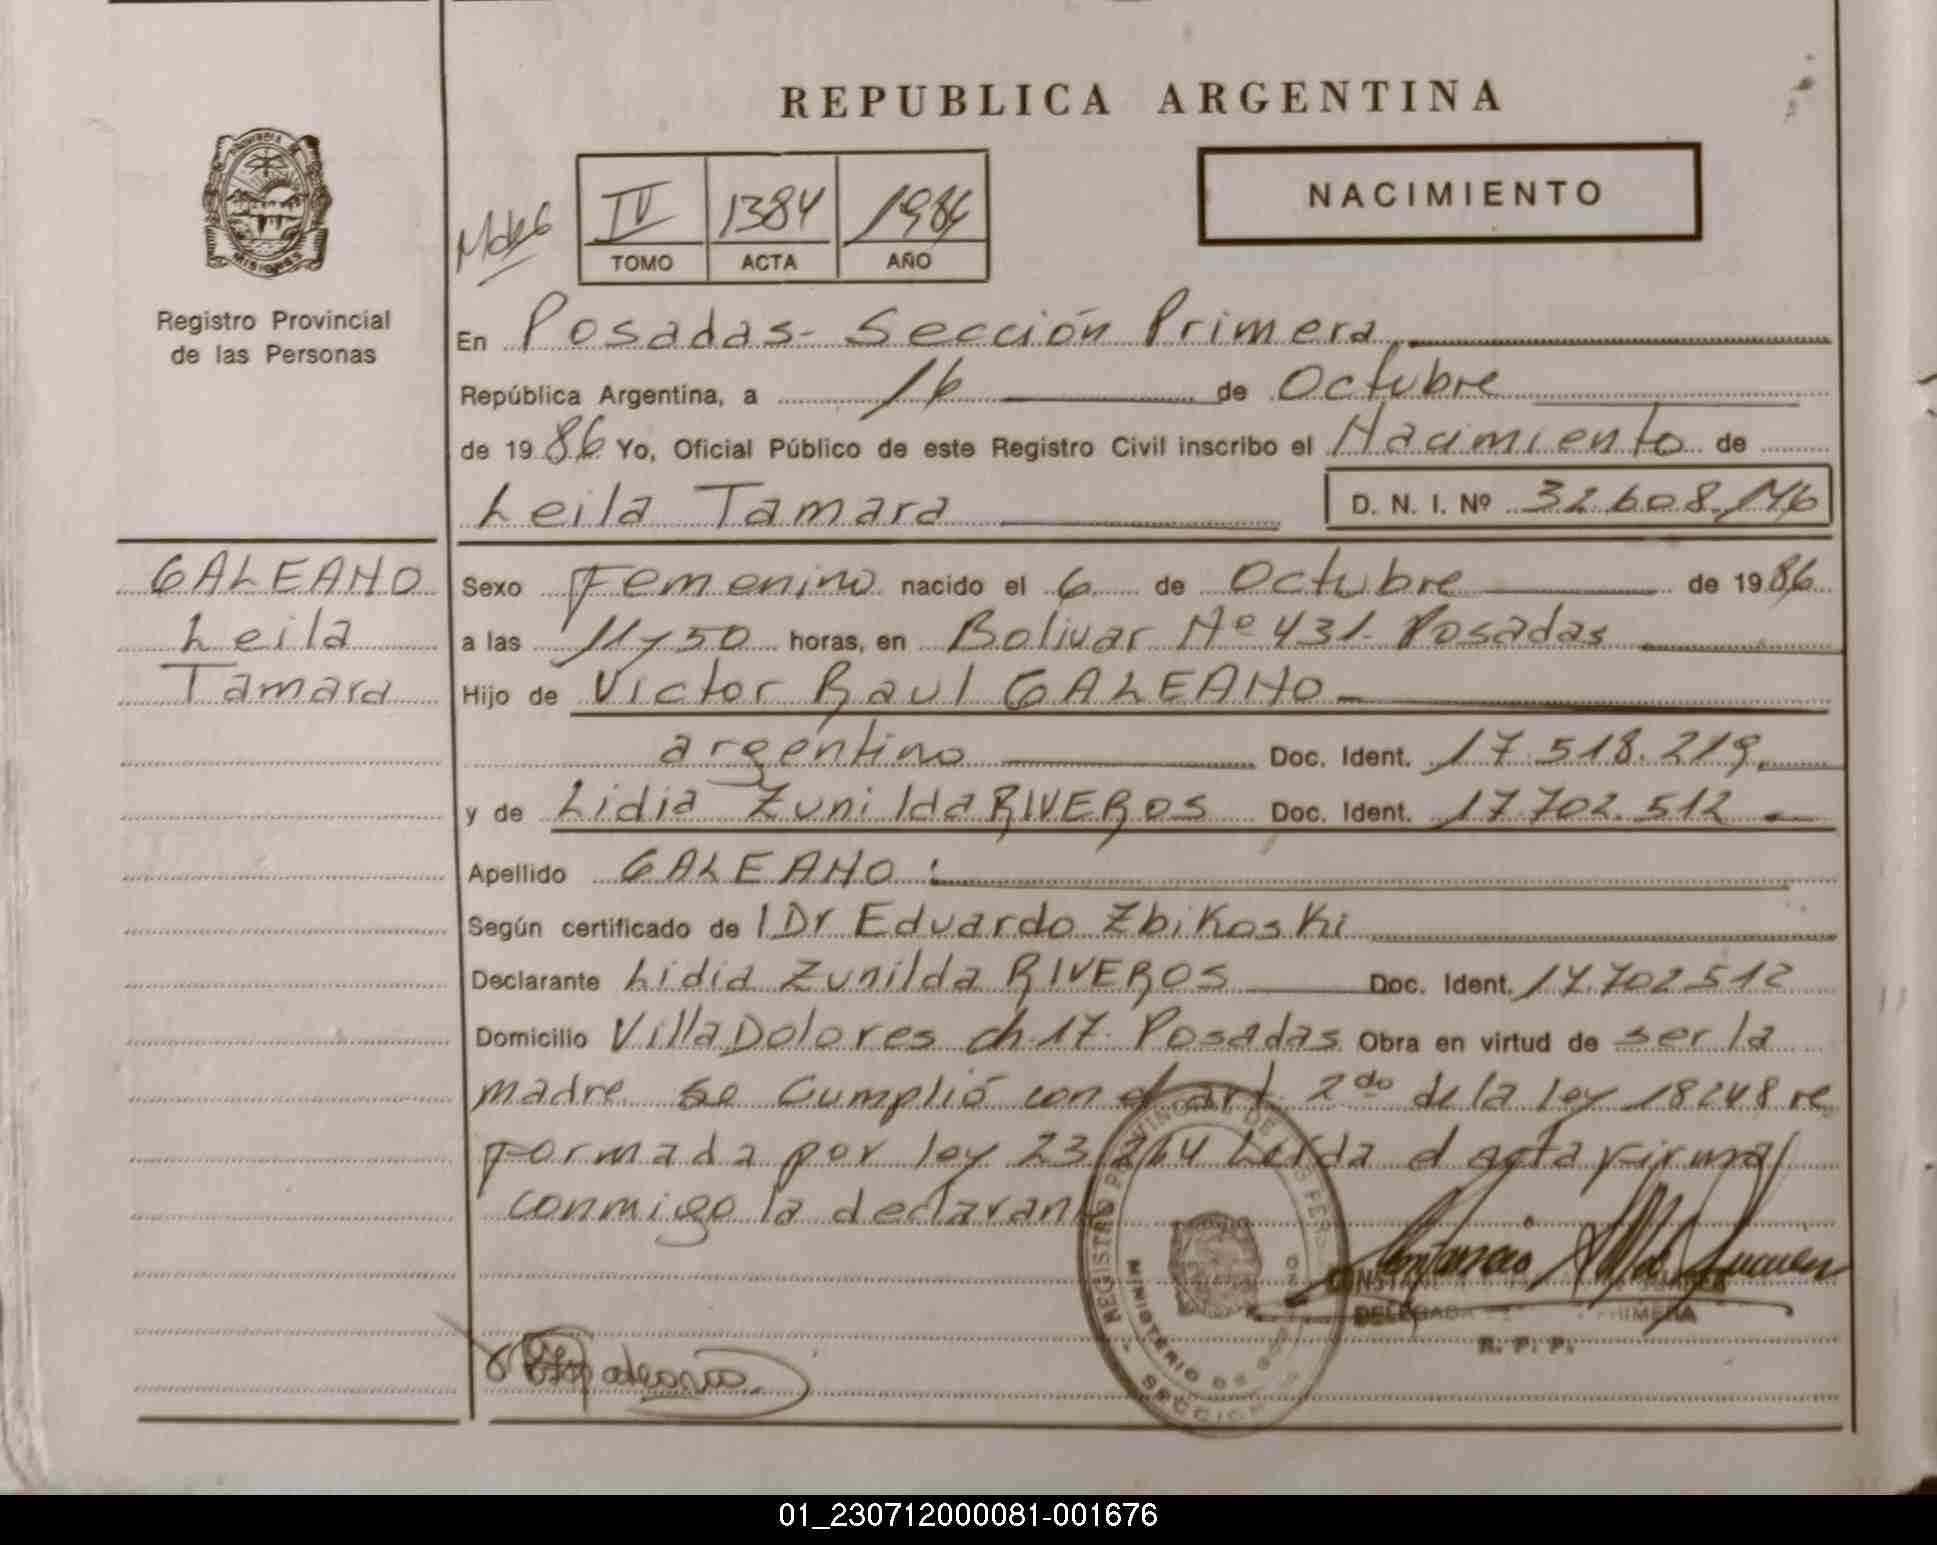 REPUBLICA ARGENTINA
NACIMIENTO
IV 1384 1986
TOMO ACTA AÑO
PROVINCIA DE
MISIONES
Registro Provincial
de las Personas
En Posadas - Sección Primera
República Argentina, a 16 de Octubre
de 1986 Yo, Oficial Público de este Registro Civil inscribo el Nacimiento de
Leila Tamara D. N. I. Nº 32.608.146
GALEANO
Leila
Tamara
Sexo Femenino nacido el 6 de Octubre de 1986
a las 11 y 50 horas, en Bolivar Nº 431. Posadas
Hijo de Victor Raul GALEANO
argentino Doc. Ident. 17.518.219
y de Lidia Zunilda RIVEROS Doc. Ident. 17.702.512
Apellido GALEANO
Según certificado de l Dr Eduardo Zbikoski
Declarante Lidia Zunilda RIVEROS Doc. Ident. 17.702512
Domicilio Villa Dolores ch 17. Posadas Obra en virtud de ser la
madre se Cumplió con el art 2do de la ley 18248 re
formada por ley 23.264 Leida el acta firma
conmigo la declaran
REGISTRO PROVINCIAL DE LAS PERS
MINISTERIO DE GOB
SECCION
DELEGADA PRIMERA
R. P. P.
01_230712000081-001676